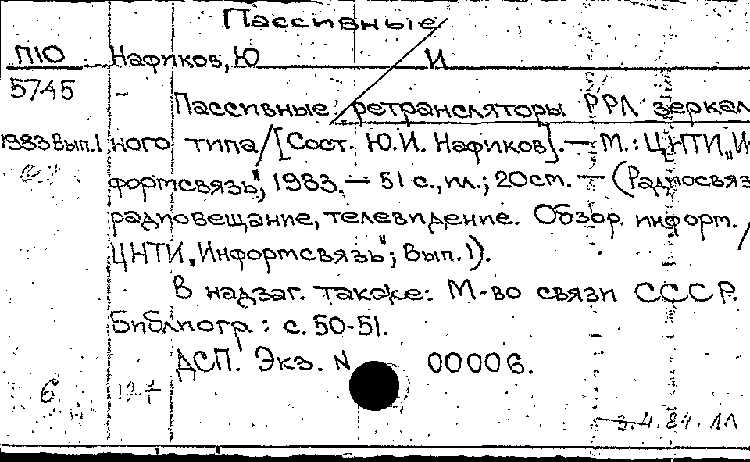 Пассивные
П10 Нафиков, Ю И
5745
Пассивные ретрансляторы РРЛ зеркаль
1983 Вып.1 ного типа/[Сост. Ю.И. Нафиков].— М.: ЦНТИ „И
формсвязь", 1983.— 51 с., ил.; 20 см. — (Радиосвяз
радиовещание, телевидение. Обзор. информ. /
ЦНТИ „Информсвязь"; Вып. 1).
В надзаг. также: М-во связи СССР.
Библиогр: с. 50-51.
ДСП. Экз. N 00006.
6